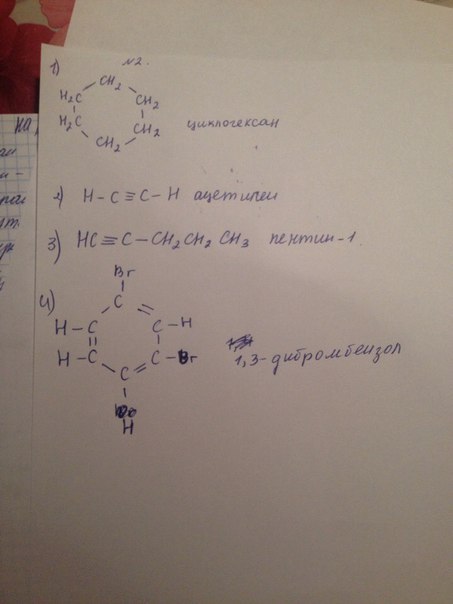 №2.
1)
CH₂
H₂C CH₂
H₂C CH₂
CH₂
циклогексан
2) H-C≡C-H ацетилен
3) HC≡C-CH₂CH₂CH₃ пентин-1.
4)
Br
C
H-C C-H
H-C C-Br
C
H
1,3-дибромбензол
на